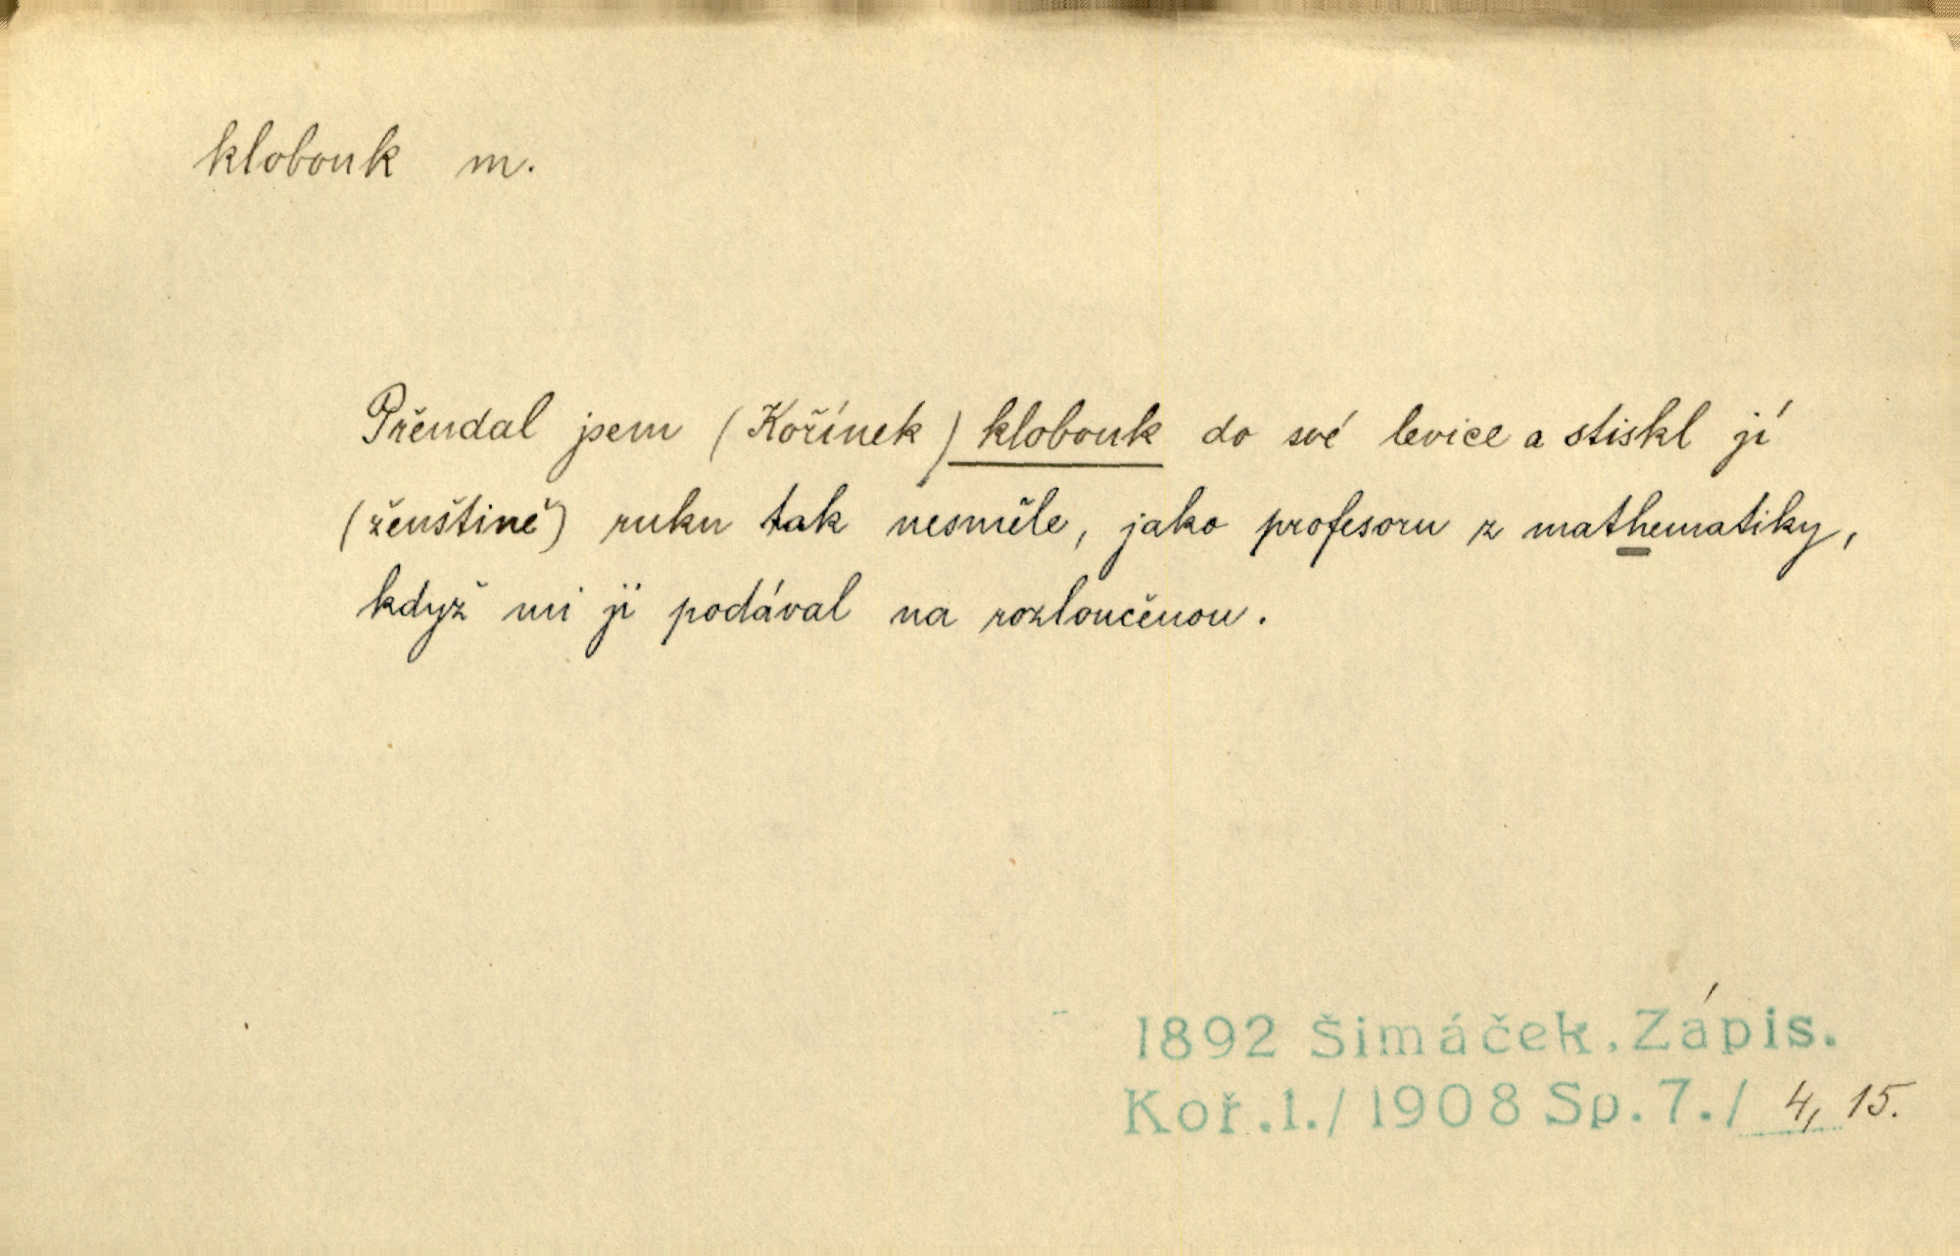 klobouk m.
Přendal jsem (Kořínek) klobouk do své levice a stiskl jí
(ženštině) ruku tak nesměle, jako profesoru z mathematiky,
když mi ji podával na rozloučenou.
1892 Šimáček. Zápis.
Koř.1./1908 Sp.7./ 4, 15.